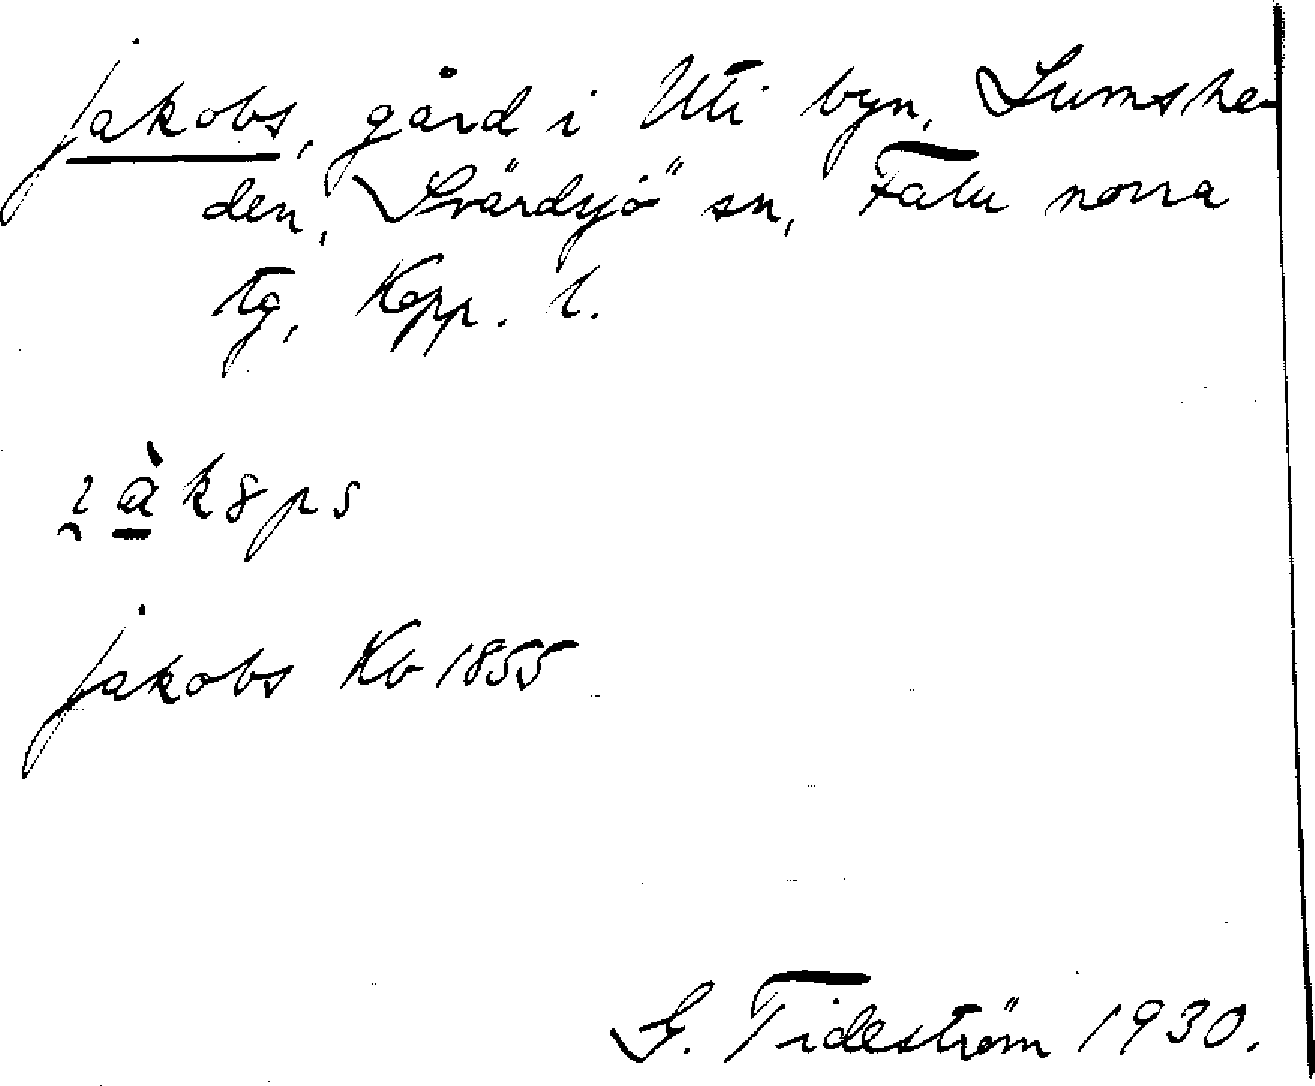 Jakobs, gård i Uti byn, Lumshe-
den, Svärdsjö sn, Falu norra
tg, Kopp. l.
i̯à̠k8ps
Jakobs Kb 1855
G. Tideström 1930.